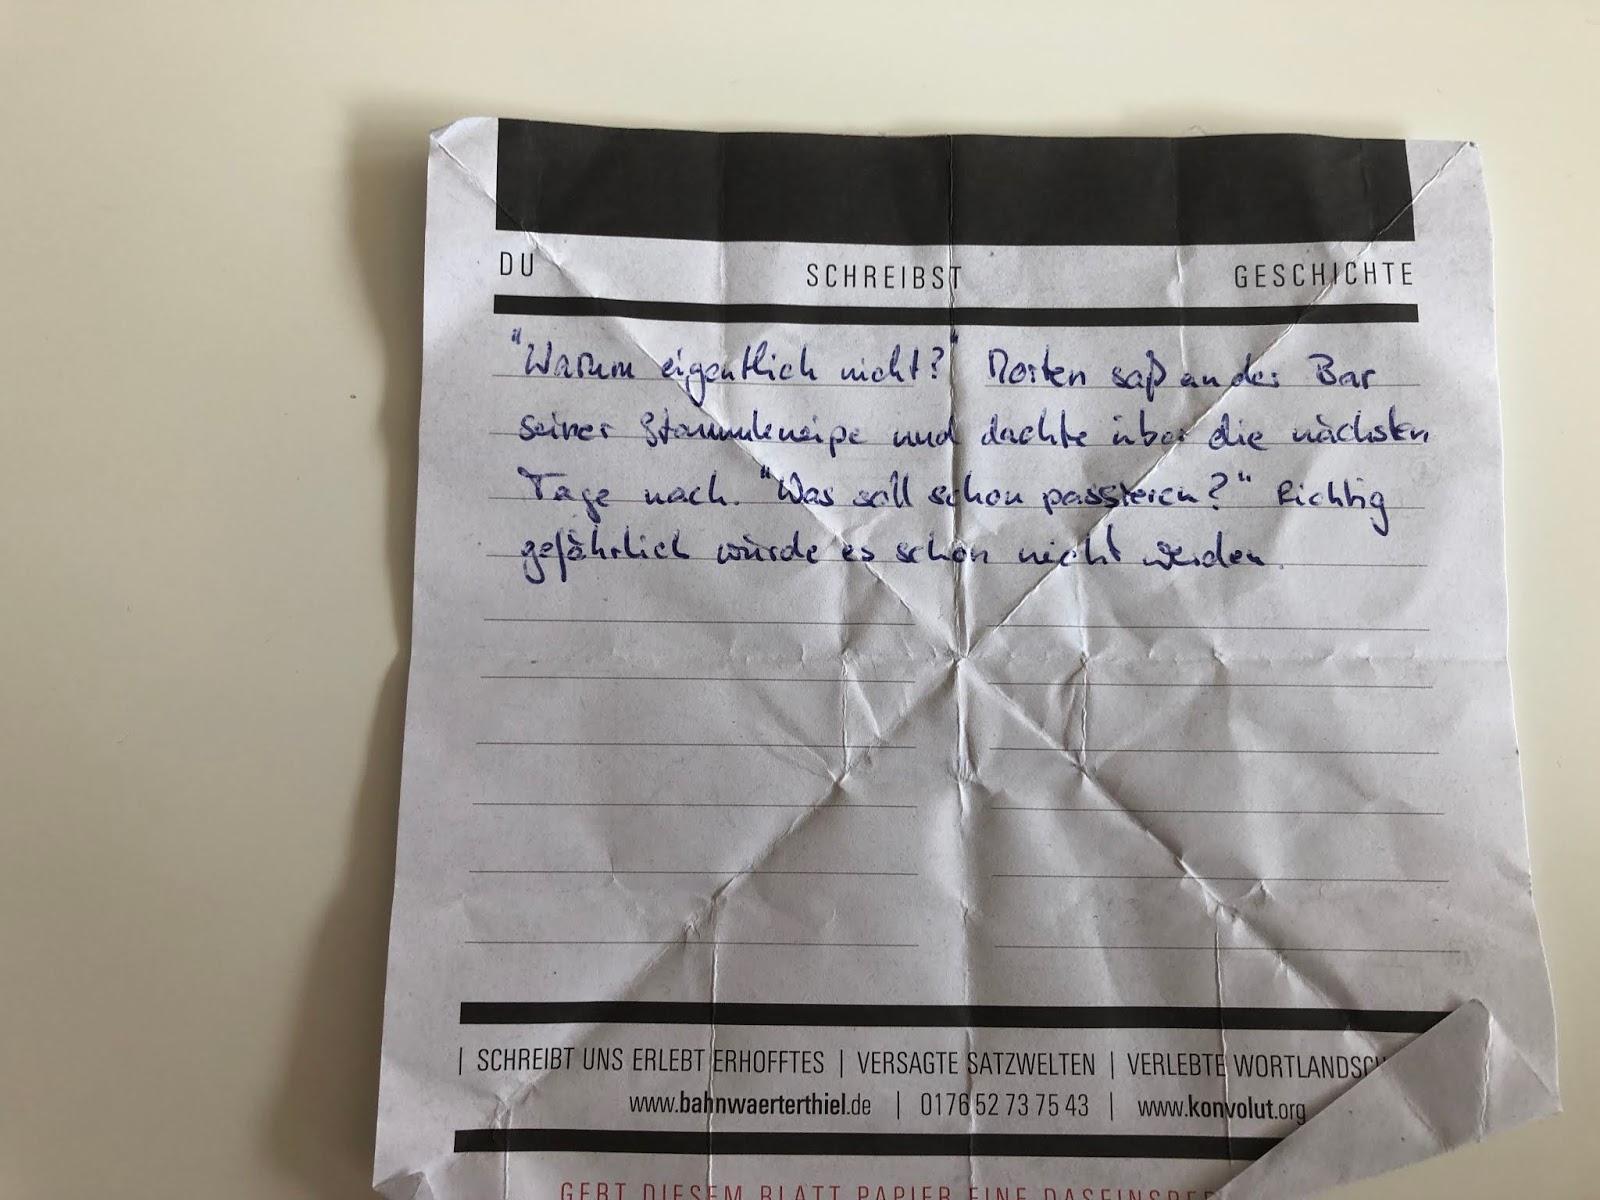 DU SCHREIBST GESCHICHTE
"Warum eigentlich nicht?" Morten saß an der Bar
seiner Stammkneipe und dachte über die nächsten
Tage nach. "Was soll schon passieren?" Richtig
gefährlich würde es schon nicht werden.
| SCHREIBT UNS ERLEBT ERHOFFTES | VERSAGTE SATZWELTEN | VERLEBTE WORTLANDSCH
www.bahnwaerterthiel.de | 0176 52 73 75 43 | www.konvolut.org
GEBT DIESEM BLATT PAPIER EINE